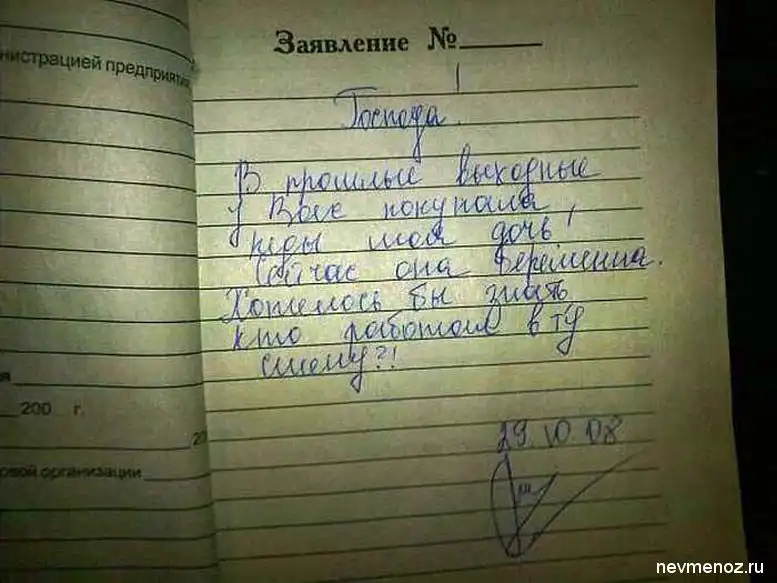 Заявление №
нистрацией предприятия
Господа!
В прошлые выходные
у Вас покупала
кеды моя дочь!
Сейчас она беременна.
Хотелось бы знать
кто работал в ту
смену?!
я
200 г.
20
29.10.08
овой организации
nevmenoz.ru